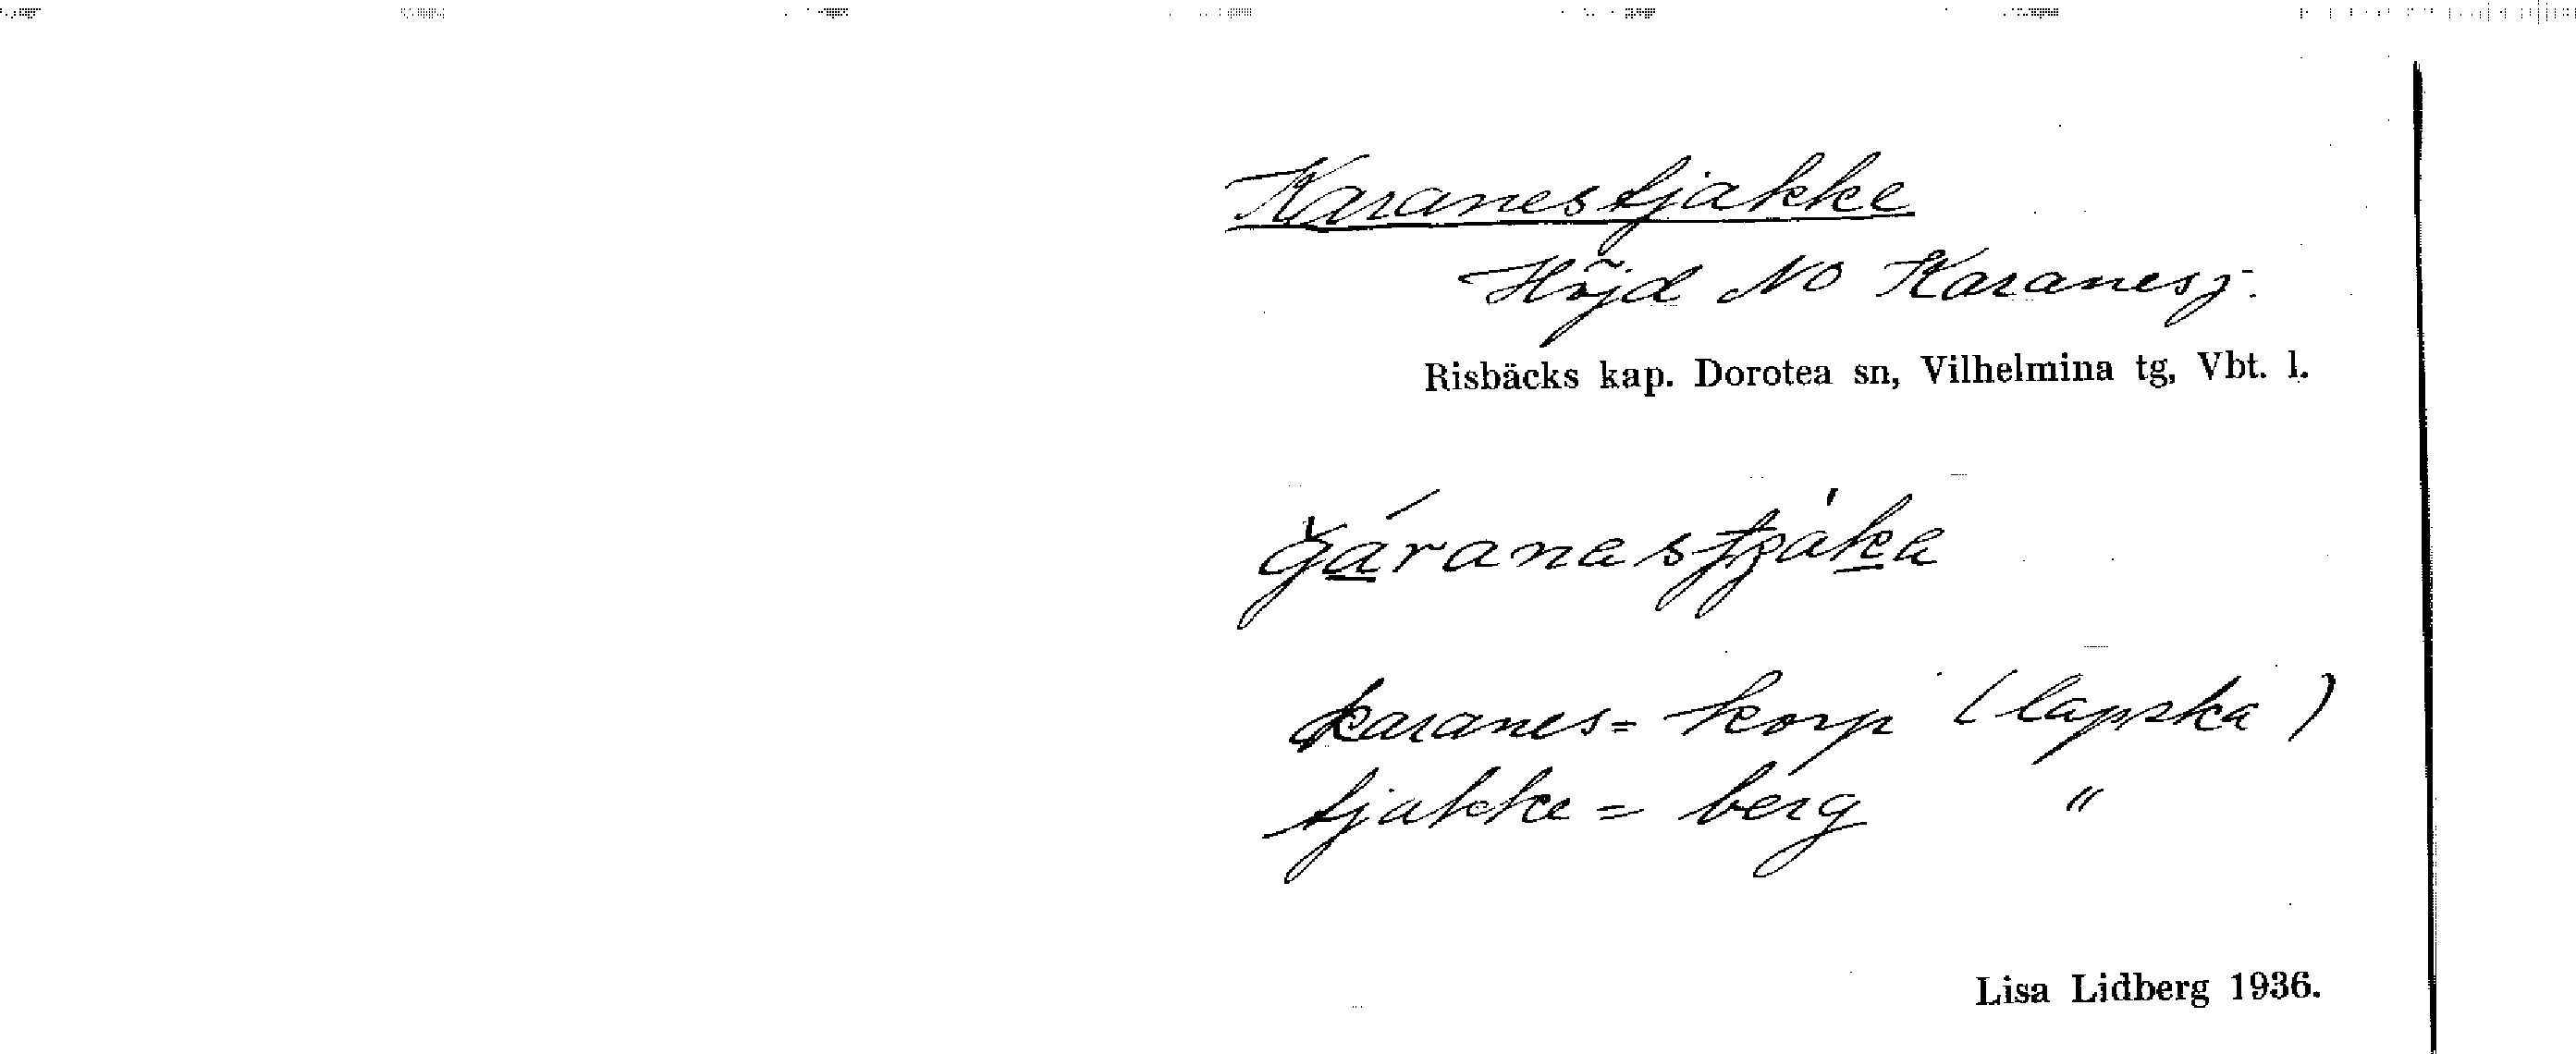 Karanestjakke
Höjd NO Karanesj.
Risbäcks kap. Dorotea sn, Vilhelmina tg, Vbt. l.
karanes = korp (lapska)
tjakke = berg "
Lisa Lidberg 1936.